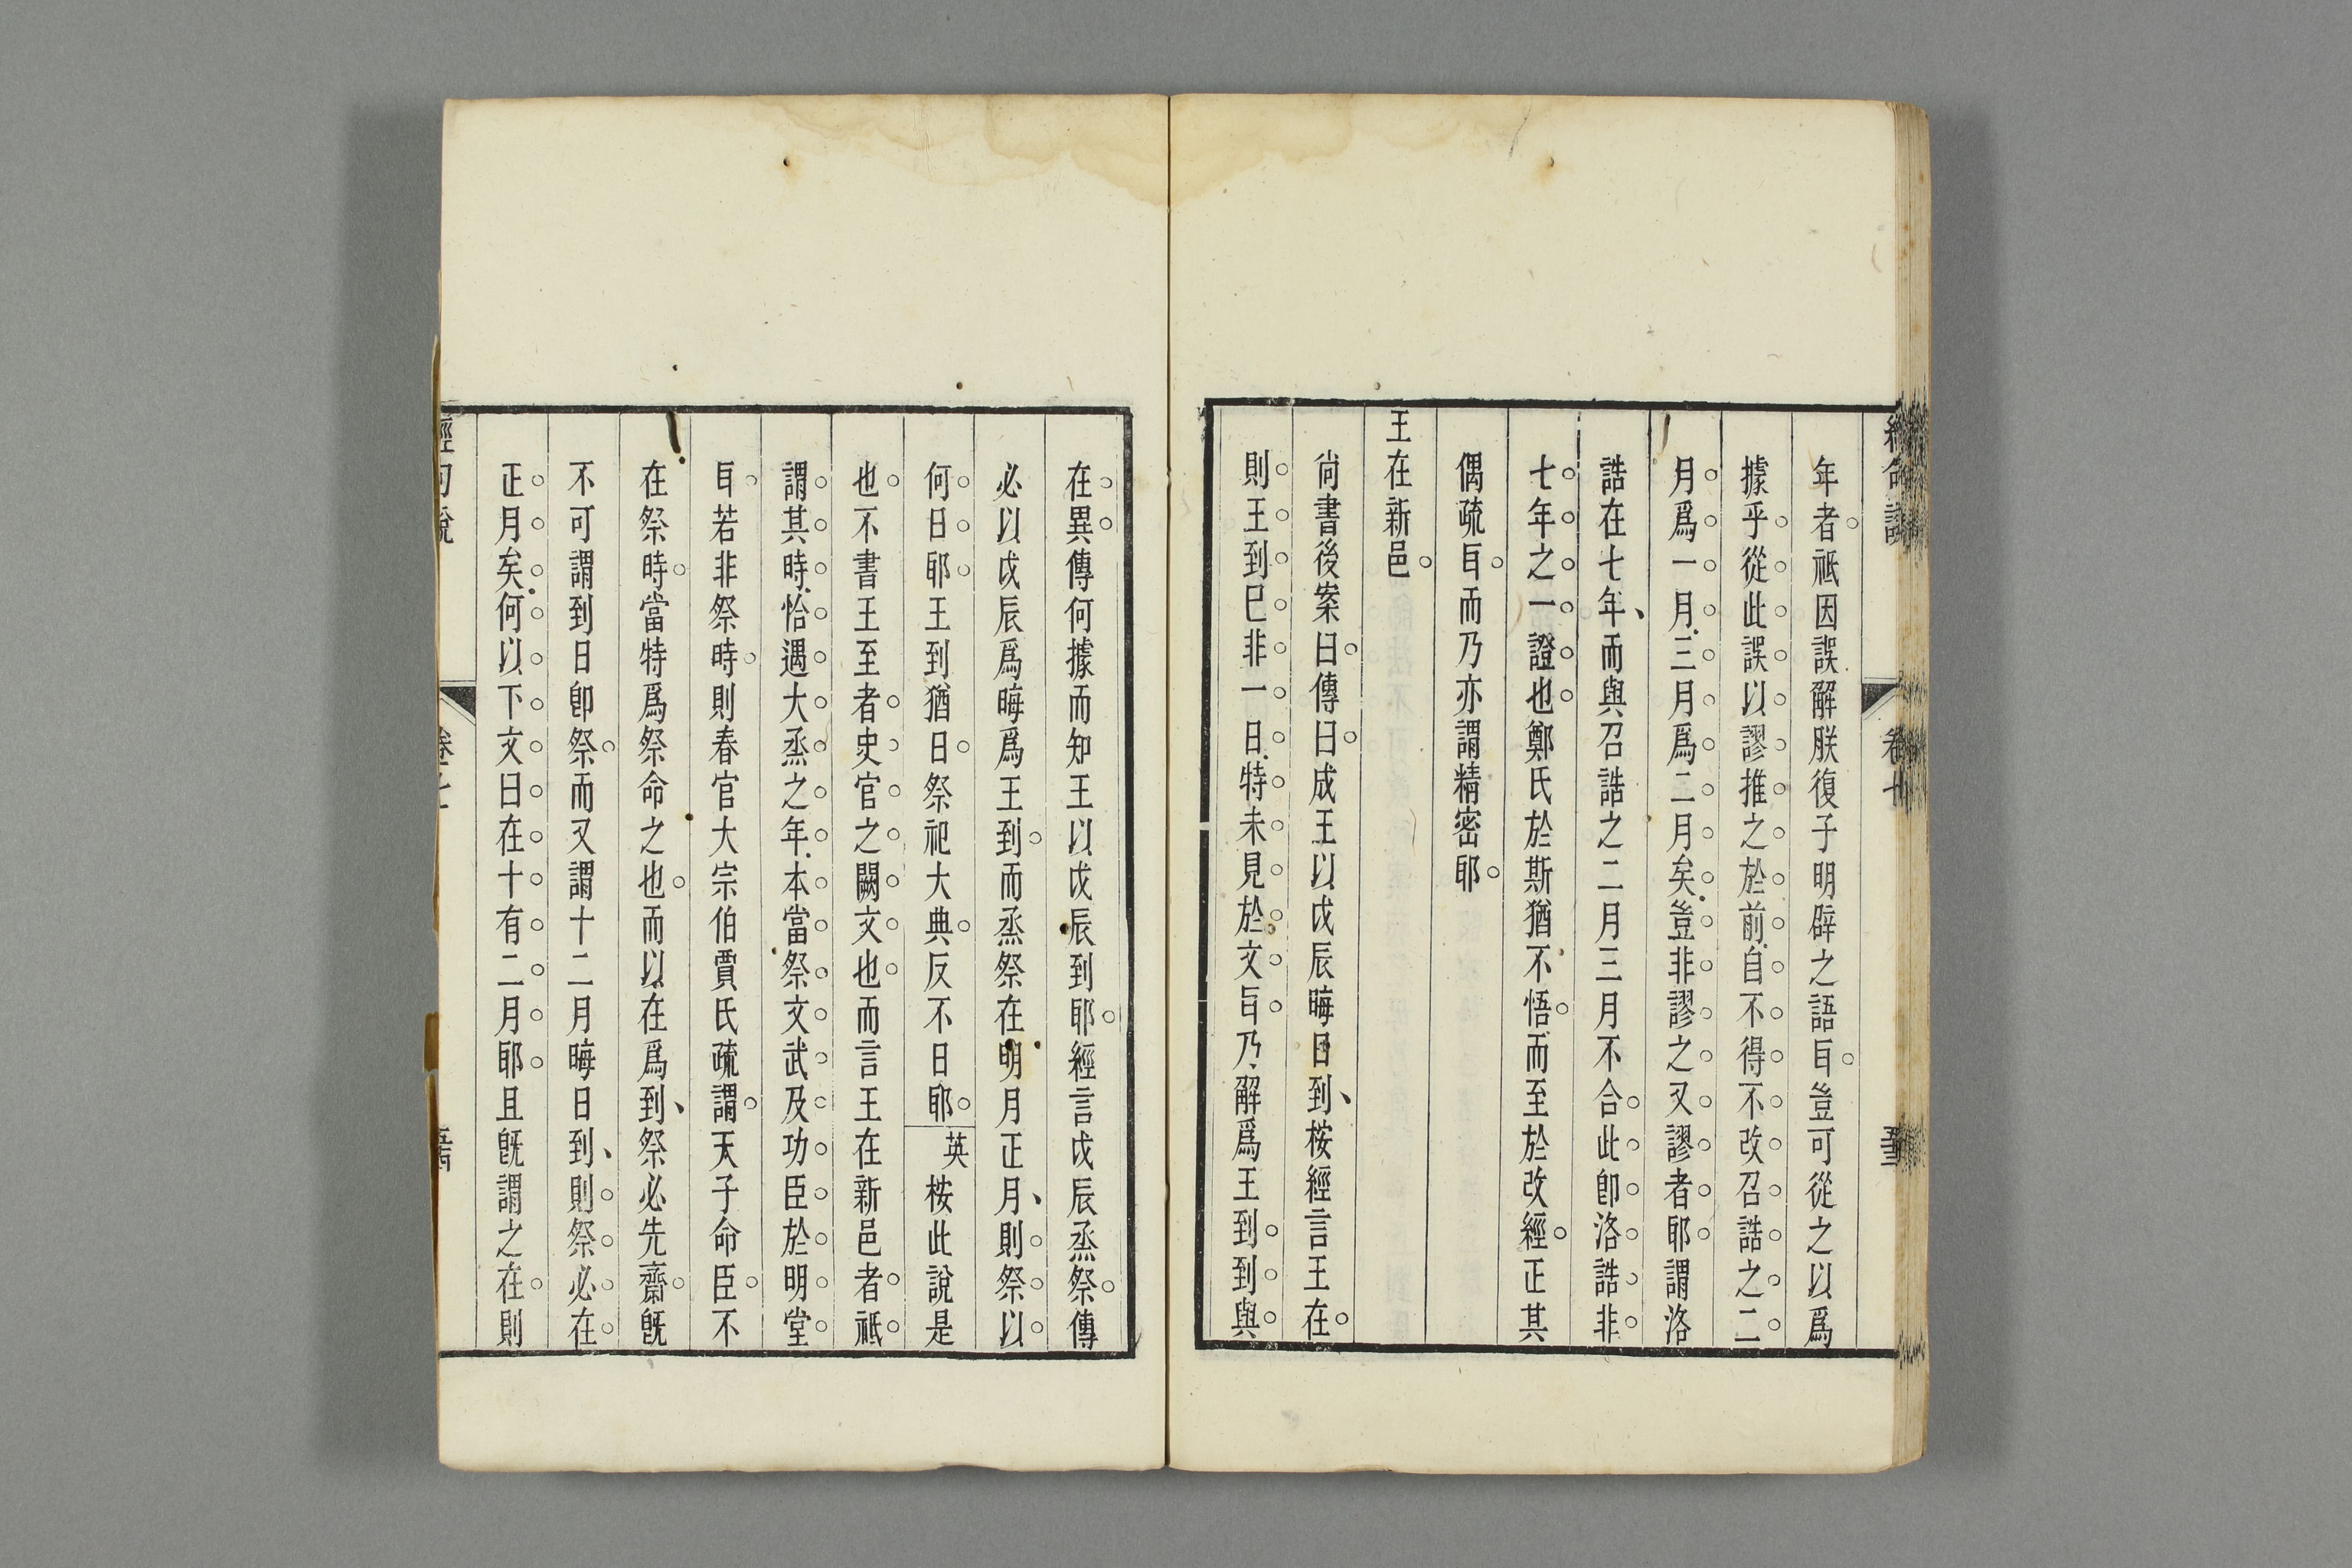 年者祗因誤解朕復子明辟之語耳豈可從之以爲
據乎從此誤以謬推之於前自不得不改召誥之二
月爲一月三月爲二月矣豈非謬之又謬者耶謂洛
誥在七年而與召誥之二月三月不合此卽洛誥非
七年之一證也鄭氏於斯猶不悟而至於改經正其
偶疏耳而乃亦謂精密耶
王在新邑
尙書後案曰傳曰成王以戊辰晦日到桉經言王在
則王到巳非一日特未見於文耳乃解爲王到到與
在異傳何據而知王以戊辰到耶經言戊辰烝祭傳
必以戊辰爲晦爲王到而烝祭在明月正月則祭以
何日耶王到猶日祭祀大典反不日耶英桉此說是
也不書王至者史官之闕文也而言王在新邑者祗
謂其時恰遇大烝之年本當祭文武及功臣於明堂
耳若非祭時則春官大宗伯賈氏疏謂天子命臣不
在祭時當特爲祭命之也而以在爲到祭必先齋旣
不可謂到日卽祭而又謂十二月晦日到則祭必在
正月矣何以下文曰在十有二月耶且旣謂之在則
經句說